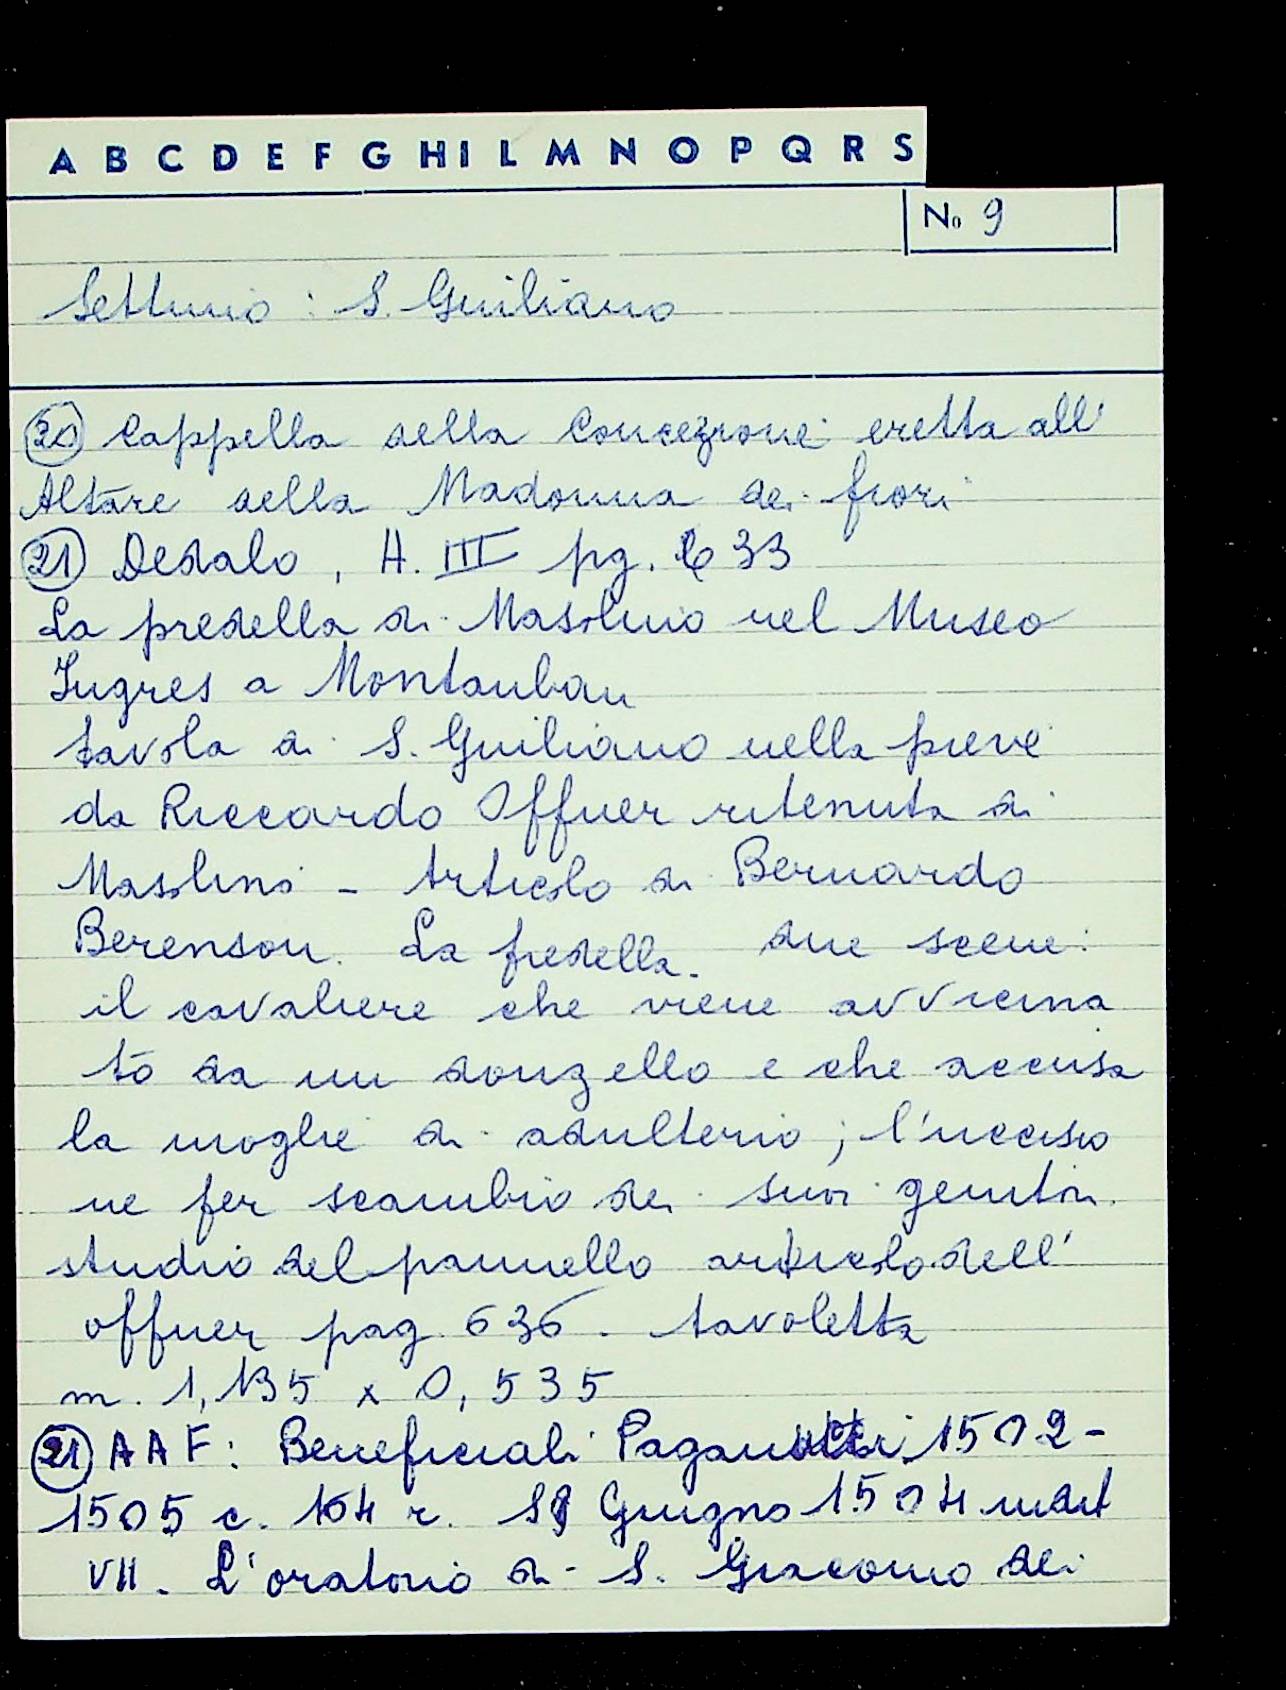 A B C D E F G HI L M N O P Q R S
No 9
Settimo : S. Giuliano
20 Cappella della Concezione eretta all'
Altare della Madonna dei fiori
21 Dedalo, A. III pg. 633
La predella di Masolino nel Museo
Ingres a Montauban
tavola di S. Giuliano nella pieve
da Riccardo Offner ritenuta di
Masolino - Articolo di Bernardo
Berenson. La predella. due scene:
il cavaliere che viene avvicina
to da un donzello e che accusa
la moglie di adulterio; l'uccisio
ne per scambio dei suoi genitori.
studio del pannello articolo dell'
Offner pag. 636. tavoletta
m. 1,135 x 0,535
21 AAF: Beneficiali Paganucci 1502-
1505 c. 164 r. Giugno 1504 indict
VII. L'oratorio di S. Giacomo dei